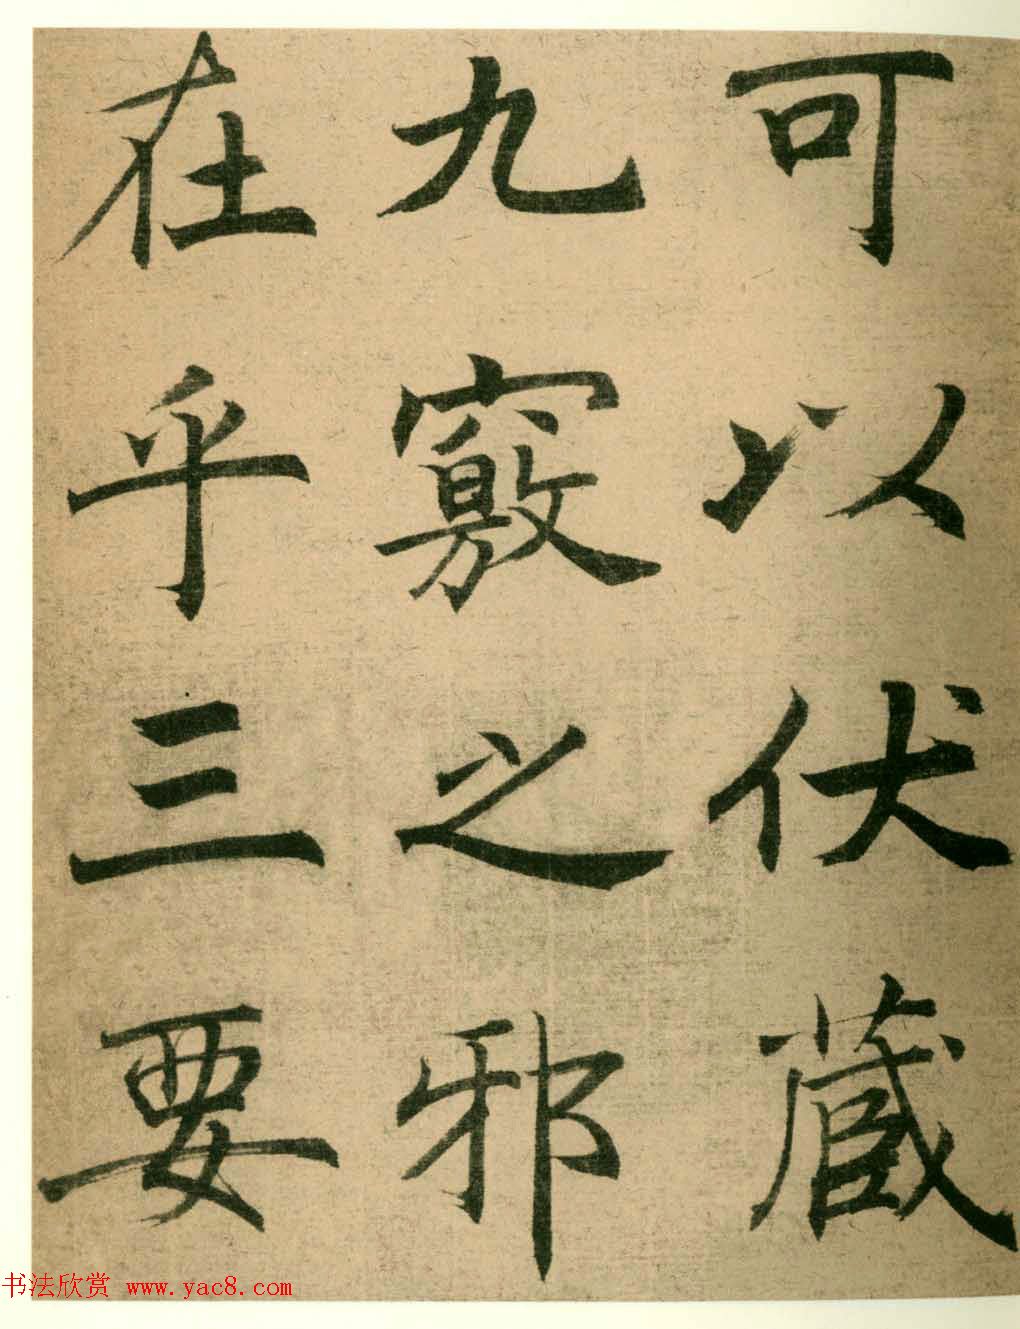 可以伏藏
九竅之邪
在乎三要
书法欣赏 www.yac8.com